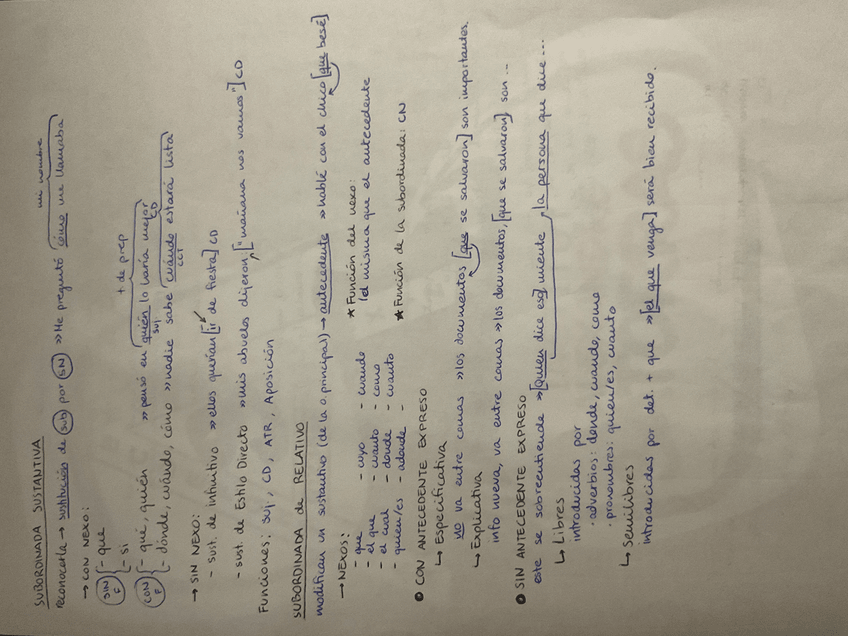 SUBORDINADA SUSTANTIVA
mi nombre
reconocerla → sustitución de sub por SN » Me preguntó cómo me llamaba
→ CON NEXO:
SIN F - que
- si
+ de prep
CON F - qué, quién » pensó en quién lo haría mejor
suj CD
- dónde, cuándo, cómo » nadie sabe cuándo estará lista
CCT
→ SIN NEXO:
- sust. de infinitivo » ellos querían [ir de fiesta] CD
- sust. de Estilo Directo » mis abuelos dijeron: ["mañana nos vamos"] CD
Funciones: suj, CD, ATR, Aposición
SUBORDINADA de RELATIVO
modifican un sustantivo (de la o. principal) → antecedente » hablé con el chico [que besé]
→ NEXOS:
- que - cuyo - cuando
- el que - cuanto - como
- el cual - donde - cuanto
- quien/es - adonde -
★ Función del nexo:
la misma que el antecedente
★ Función de la subordinada: CN
● CON ANTECEDENTE EXPRESO
↳ Especificativa
no va entre comas » los documentos [que se salvaron] son importantes.
↳ Explicativa
info nueva, va entre comas » los documentos, [que se salvaron], son ...
● SIN ANTECEDENTE EXPRESO
este se sobreentiende » [Quien dice eso] miente, la persona que dice ...
↳ Libres
introducidas por
· adverbios: donde, cuando, como
· pronombres: quien/es, cuanto
↳ Semilibres
introducidas por det. + que » [el que venga] será bien recibido.